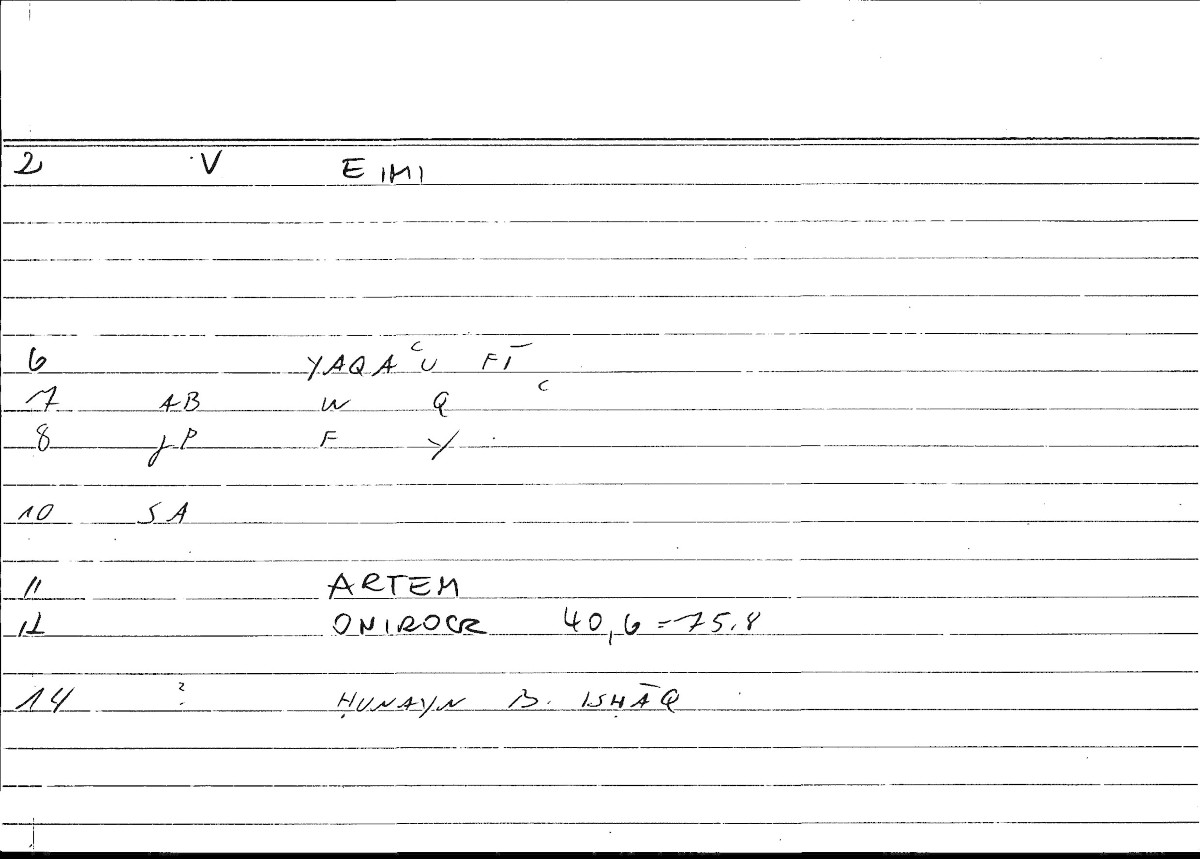 2 V EIMI
6 YAQAʿU FĪ
7 AB W Q ʿ
8 JP F Y
10 SA
11 ARTEM
12 ONIROCR 40,6 = 75.8
14 ? ḤUNAYN B. ISḤĀQ